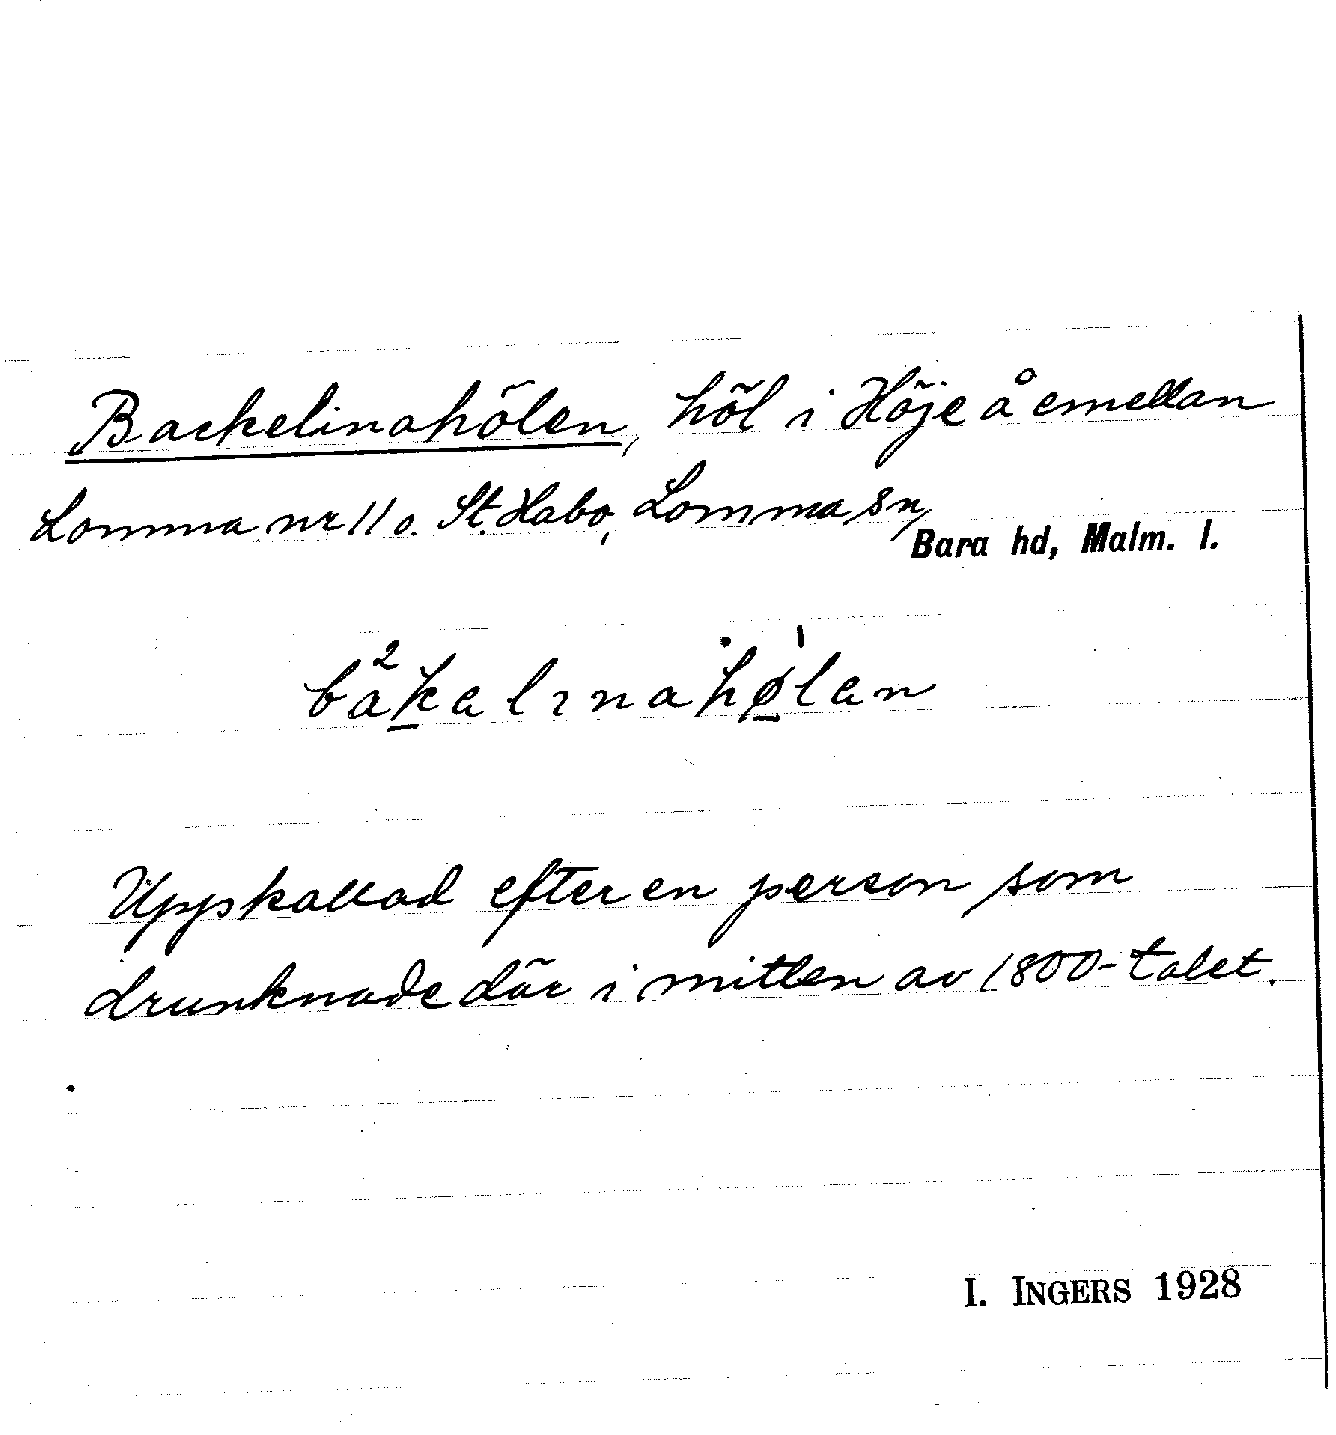 Backelinahölen, höl i Höje å emellan
Lomma nr 11 o. St. Habo, Lomma sn,
Bara hd, Malm. l.
bä²kalınahø̱lan
Uppkallad efter en person som
drunknade där i mitten av 1800-talet.
I. INGERS 1928